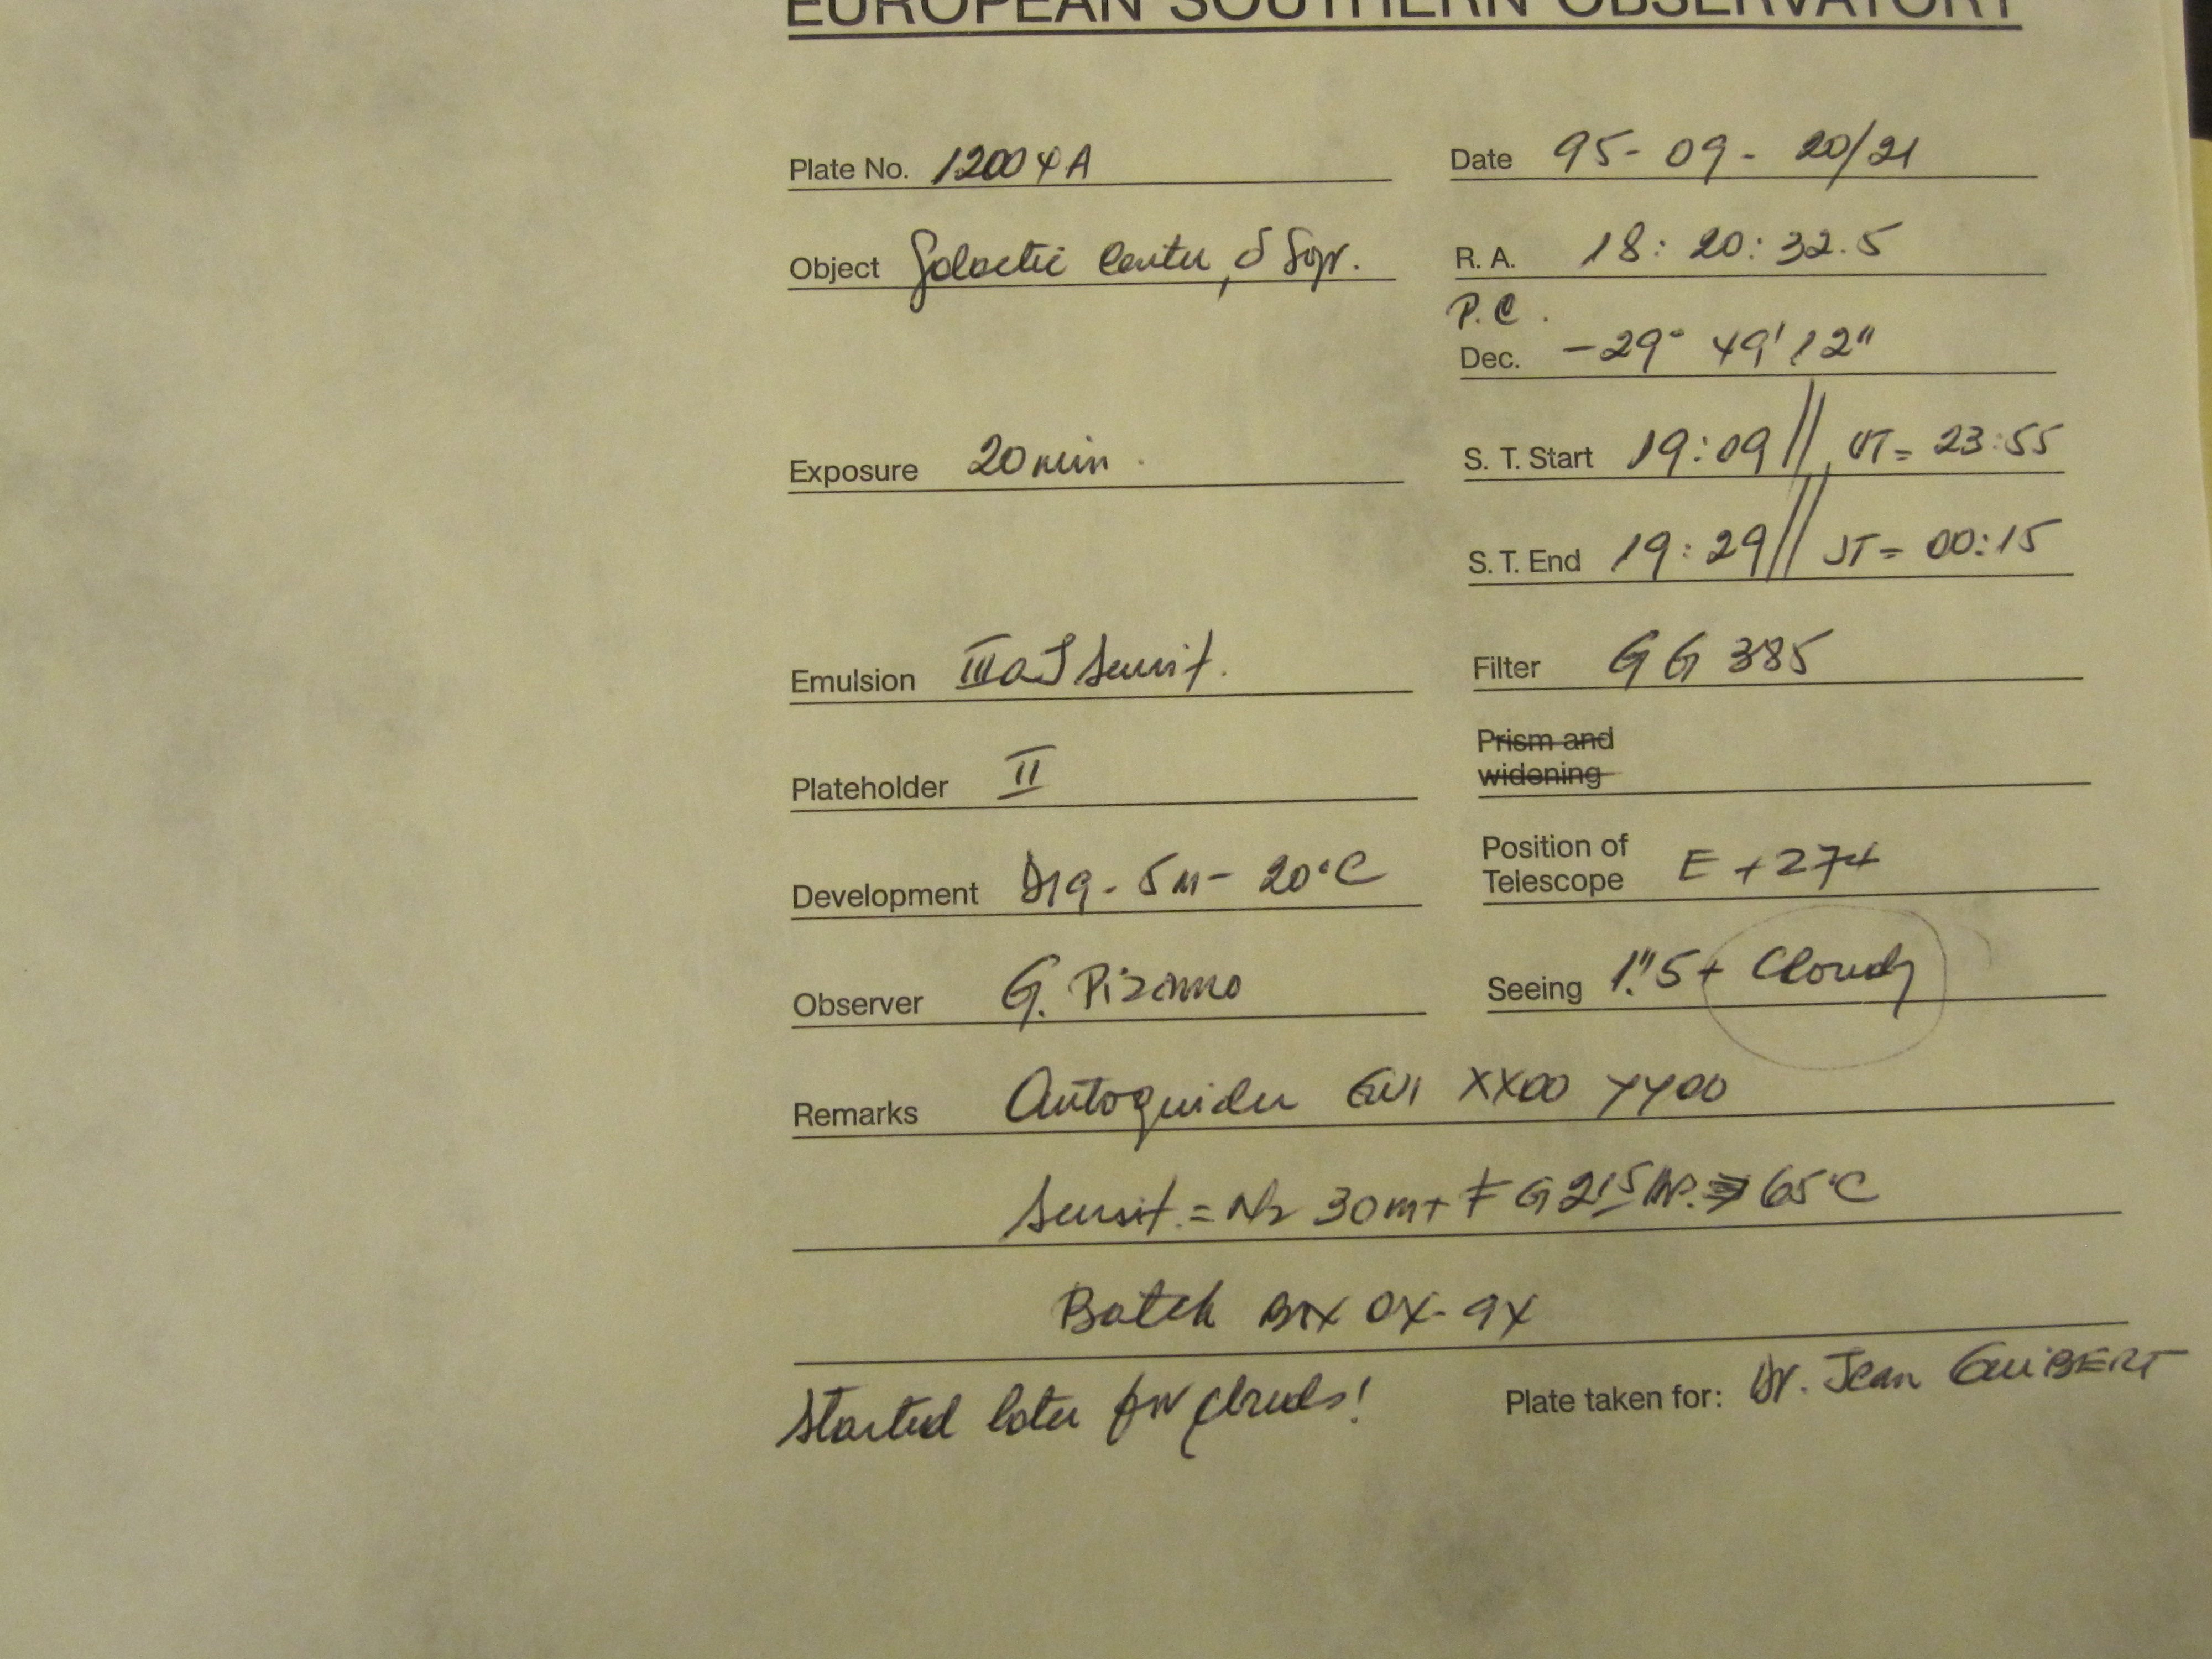 EUROPEAN SOUTHERN OBSERVATORY
Plate No. 12004A
Date 95-09-20/21
Object Galactic Center, δ Sgr.
R. A. 18:20:32.5
P.C.
Dec. -29° 49' 12"
Exposure 20 min.
S. T. Start 19:09 // UT= 23:55
S. T. End 19:29 // UT= 00:15
Emulsion IIIaJ Sensit.
Filter GG 385
Plateholder II
Prism and
widening
Development D19 - 5m - 20°C
Position of
Telescope E +274
Observer G. Pizarro
Seeing 1."5 + Cloudy
Remarks Autoguider XX00 YY00
Sensit. = N2 30m + F G 215 65°C
Batch
Started later for clouds!
Plate taken for: Dr. Jean GUIBERT